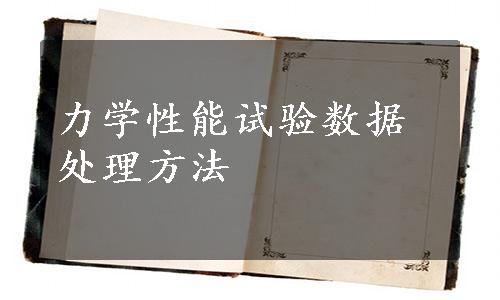 力学性能试验数据
处理方法